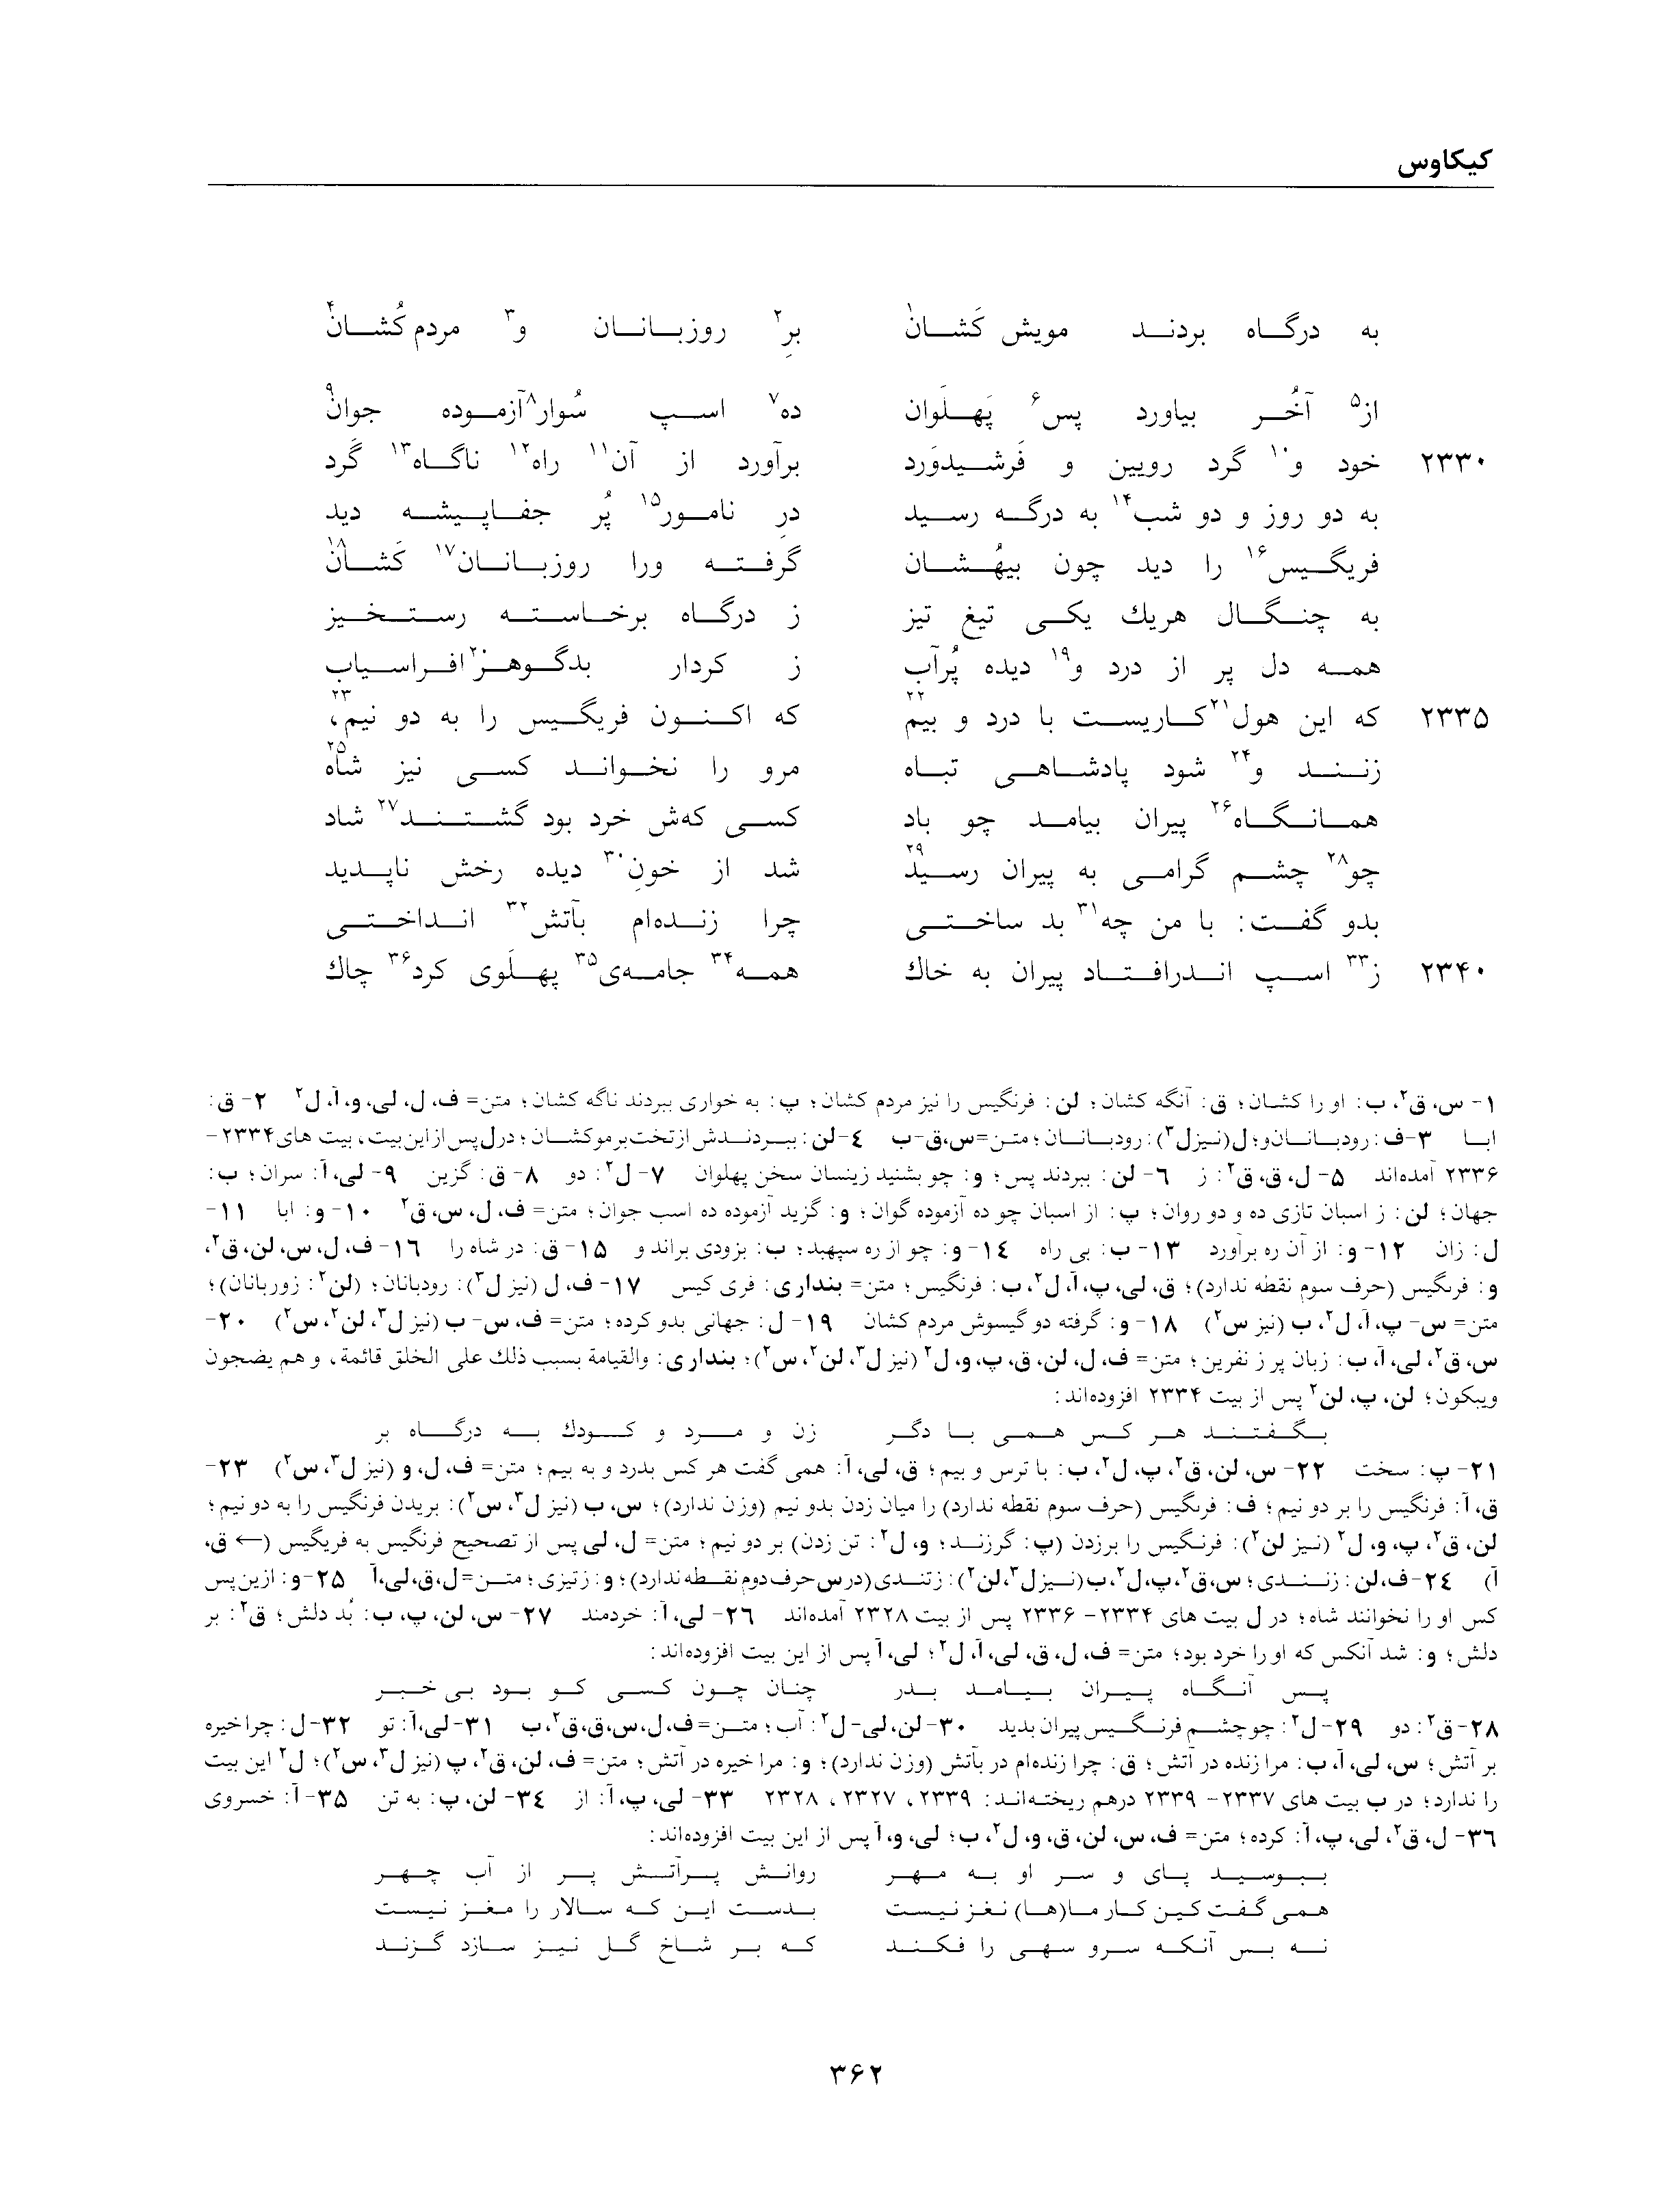 کیکاوس
به درگاه بردند مویش کَشان۱ برِ۲ روزبانان و۳ مردم کُشان۴
از۵ آخُر بیاورد پس۶ پَهلَوان ده۷ اسپ سُوار۸ آزموده جوان۹
۲۳۳۰ خود و۱۰ گرد رویین و فَرشیدوَرد برآورد از آن۱۱ راه۱۲ ناگاه۱۳ گَرد
به دو روز و دو شب۱۴ به درگه رسید درِ نامور۱۵ پُر جفاپیشه دید
فریگیس۱۶ را دید چون بیهُشان گرفته ورا روزبانان۱۷ کَشان۱۸
به چنگال هریك یکی تیغ تیز ز درگاه برخاسته رستخیز
همه دل پر از درد و۱۹ دیده پُرآب ز کردار بدگوهر۲۰ افراسیاب
۲۳۳۵ که این هول۲۱ کاریست با درد و بیم۲۲ که اکنون فریگیس را به دو نیم،۲۳
زنند و۲۴ شود پادشاهی تباه مرو را نخواند کسی نیز شاه۲۵
همانگاه۲۶ پیران بیامد چو باد کسی کەش خرد بود گشتند۲۷ شاد
چو۲۸ چشم گرامی به پیران رسید۲۹ شد از خونِ۳۰ دیده رخش ناپدید
بدو گفت: با من چه۳۱ بد ساختی چرا زنده‌ام بآتش۳۲ انداختی
۲۳۴۰ ز۳۳ اسپ اندرافتاد پیران به خاك همه۳۴ جامه‌ی۳۵ پهلَوی کرد۳۶ چاك
۱- س، ق۲، ب: او را کشان؛ ق: آنگه کشان؛ لن: فرنگیس را نیز مردم کشان؛ پ: به خواری ببردند ناگه کشان؛ متن= ف، ل، لی، و، آ، ل۲ ۲- ق:
ابا ۳-ف: رودبانان و؛ ل(نیز ل۳): رودبانان؛ متن=س، ق-ب ۴-لن: ببردندش از تخت بر مو کشان؛ در ل پس از این بیت، بیت های ۲۳۳۴-
۲۳۳۶ آمده‌اند ۵- ل، ق، ق۲: ز ۶- لن: ببردند پس؛ و: چو بشنید زینسان سخن پهلوان ۷- ل۲: دو ۸- ق: گزین ۹- لی، آ: سران؛ ب:
جهان؛ لن: ز اسبان تازی ده و دو روان؛ پ: از اسبان چو ده آزموده گوان؛ و: گزید آزموده ده اسب جوان؛ متن= ف، ل، س، ق۲ ۱۰- و: ابا ۱۱-
ل: زان ۱۲- و: از آن ره برآورد ۱۳- ب: بی راه ۱۴- و: چو از ره سپهبد؛ ب: بزودی براند و ۱۵- ق: در شاه را ۱۶- ف، ل، س، لن، ق۲،
و: فرىگیس (حرف سوم نقطه ندارد)؛ ق، لی، پ، آ، ل۲، ب: فرنگیس؛ متن= بنداری: فری کیس ۱۷- ف، ل (نیز ل۳): رودبانان؛ (لن۲: زوربانان)؛
متن= س- پ، آ، ل۲، ب (نیز س۲) ۱۸- و: گرفته دو گیسوش مردم کشان ۱۹- ل: جهانی بدو کرده؛ متن= ف، س- ب (نیز ل۳، لن۲، س۲) ۲۰-
س، ق۲، لی، آ، ب: زبان پر ز نفرین؛ متن= ف، ل، لن، ق، پ، و، ل۲ (نیز ل۳، لن۲، س۲)؛ بنداری: والقیامة بسبب ذلك علی الخلق قائمة، و هم یضجون
ویبکون؛ لن، پ، لن۲ پس از بیت ۲۳۳۴ افزوده‌اند:
بگفتند هر کس همی با دگر زن و مرد و کودك به درگاه بر
۲۱- پ: سخت ۲۲- س، لن، ق۲، پ، ل۲، ب: با ترس و بیم؛ ق، لی، آ: همی گفت هر کس بدرد و به بیم؛ متن= ف، ل، و (نیز ل۳، س۲) ۲۳-
ق، آ: فرنگیس را بر دو نیم؛ ف: فرىگیس (حرف سوم نقطه ندارد) را میان زدن بدو نیم (وزن ندارد)؛ س، ب (نیز ل۳، س۲): بریدن فرنگیس را به دو نیم؛
لن، ق۲، پ، و، ل۲ (نیز لن۲): فرنگیس را برزدن (پ: گرزند؛ و، ل۲: تن زدن) بر دو نیم؛ متن= ل، لی پس از تصحیح فرنگیس به فریگیس (← ق،
آ) ۲۴-ف، لن: زنندی؛ س، ق۲، پ، ل۲، ب(نیز ل۳، لن۲): ز تندی (در س حرف دوم نقطه ندارد)؛ و: ز تیزی؛ متن=ل، ق، لی، آ ۲۵-و: ازین پس
کس او را نخوانند شاه؛ در ل بیت های ۲۳۳۴- ۲۳۳۶ پس از بیت ۲۳۲۸ آمده‌اند ۲۶- لی، آ: خردمند ۲۷- س، لن، پ، ب: بُد دلش؛ ق۲: بر
دلش؛ و: شد آنکس که او را خرد بود؛ متن= ف، ل، ق، لی، آ، ل۲؛ لی، آ پس از این بیت افزوده‌اند:
پس آنگاه پیران بیامد بدر چنان چون کسی کو بود بی خبر
۲۸- ق۲: دو ۲۹- ل۲: چو چشم فرنگیس پیران بدید ۳۰- لن، لی-ل۲: آب؛ متن=ف، ل، س، ق، ق۲، ب ۳۱- لی، آ: تو ۳۲-ل: چرا خیره
بر آتش؛ س، لی، آ، ب: مرا زنده در آتش؛ ق: چرا زنده‌ام در بآتش (وزن ندارد)؛ و: مرا خیره در آتش؛ متن= ف، لن، ق۲، پ (نیز ل۳، س۲)؛ ل۲ این بیت
را ندارد؛ در ب بیت های ۲۳۳۷- ۲۳۳۹ درهم ریخته‌اند: ۲۳۳۹، ۲۳۲۷، ۲۳۲۸ ۳۳- لی، پ، آ: از ۳۴- لن، پ: به تن ۳۵- آ: خسروی
۳۶- ل، ق۲، لی، پ، آ: کرده؛ متن= ف، س، لن، ق، و، ل۲، ب؛ لی، و، آ پس از این بیت افزوده‌اند:
ببوسید پای و سر او به مهر روانش پرآتش پر از آب چهر
همی گفت کین کار ما(ها) نغز نیست بدست این که سالار را مغز نیست
نه بس آنکه سرو سهی را فکند که بر شاخ گل نیز سازد گزند
۳۶۲